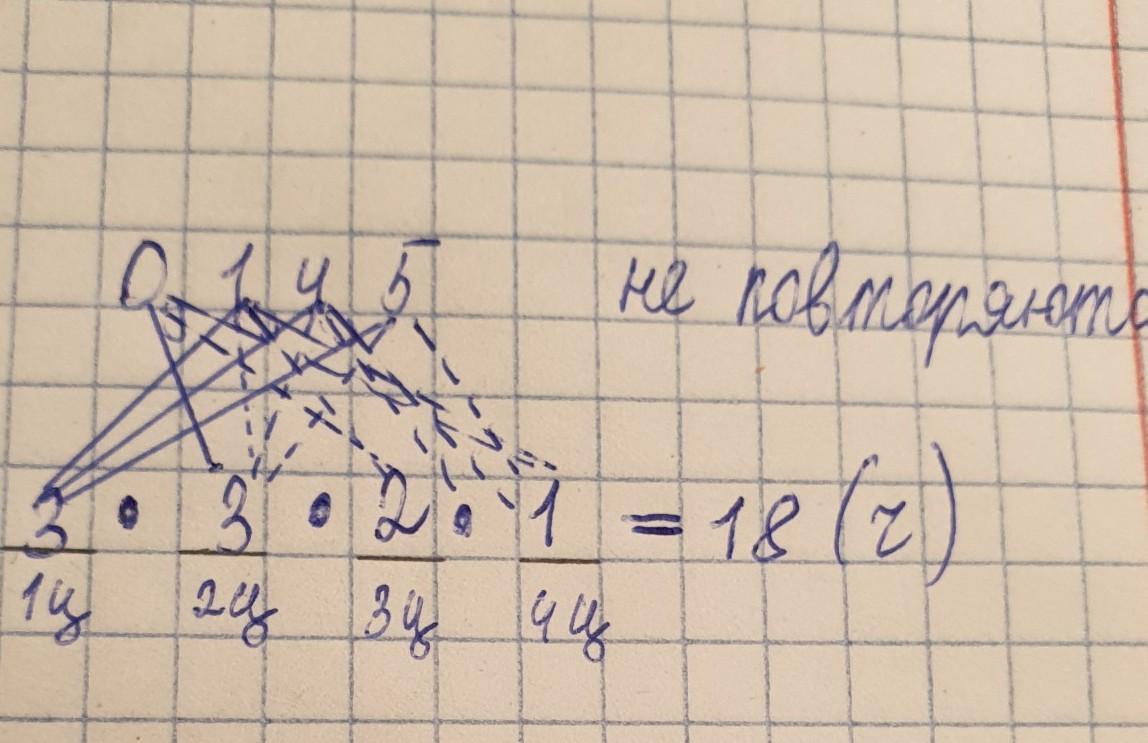 0 1 4 5 не повторяютс
3 • 3 • 2 • 1 = 18 (ч)
1ц 2ц 3ц 4ц